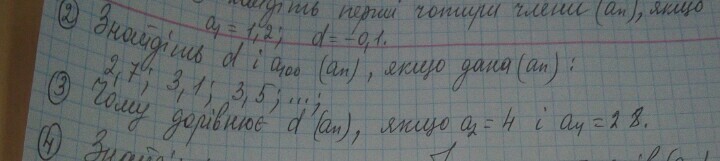 перші чотири члени (an), якщо
a1 = 1,2; d = -0,1.
② Знайдіть d і a100 (an), якщо дана (an):
2,7; 3,1; 3,5; ...;
③ Чому дорівнює d (an), якщо a2 = 4 і a4 = 28.
④